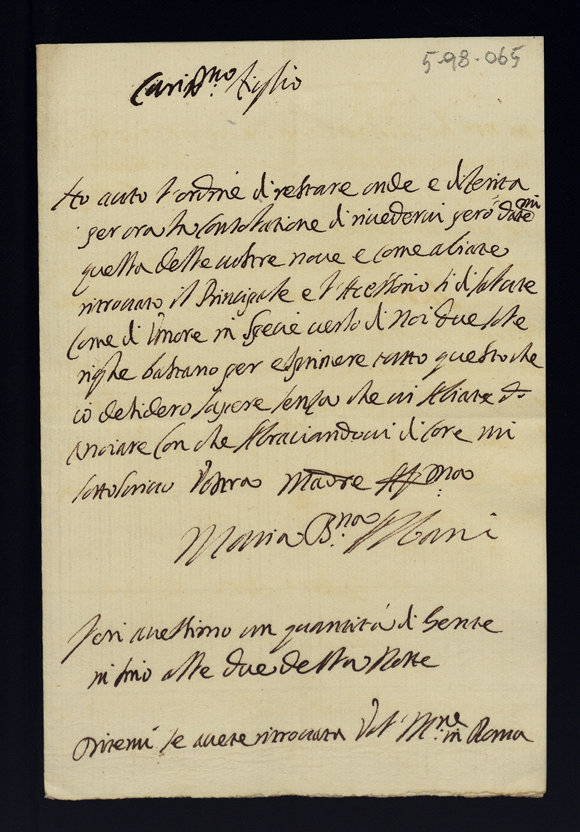 5-98-065
Cariss.mo figlio
Ho auto l'ordine di restare onde e diferita
per ora la consolatione di rivedervi però datemi
questa delle vostre nove e come aviate
ritrovato il Principale e l'Acessorio sì di salute
come di Umore in specie verso di Noi due sole
righe bastano per esprimere tutto questo che
io desidero sapere senza che vi stiate
anoiare con che abraciandovi di core mi
sottoscrivo Vostra Madre Aff.ma
Maria B.na
Ieri avessimo un quantità di Gente
insino alle due della Notte
Ditemi se avete ritrovata in Roma